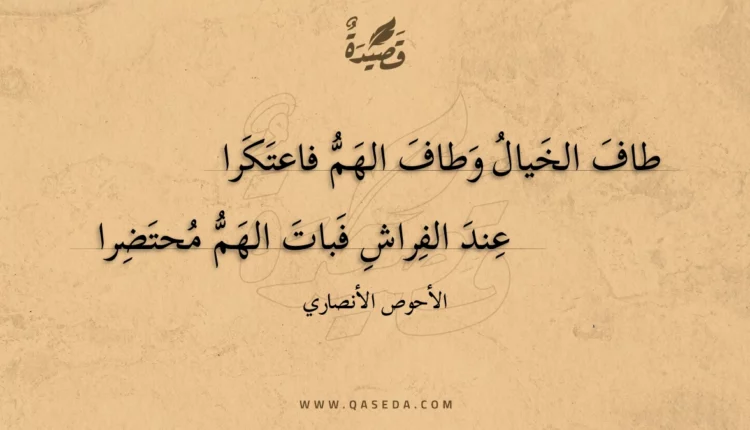 قَصِيدَةٌ
طافَ الخَيالُ وَطافَ الهَمُّ فاعتَكَرا
عِندَ الفِراشِ فَباتَ الهَمُّ مُحتَضِرا
الأحوص الأنصاري
WWW.QASEDA.COM